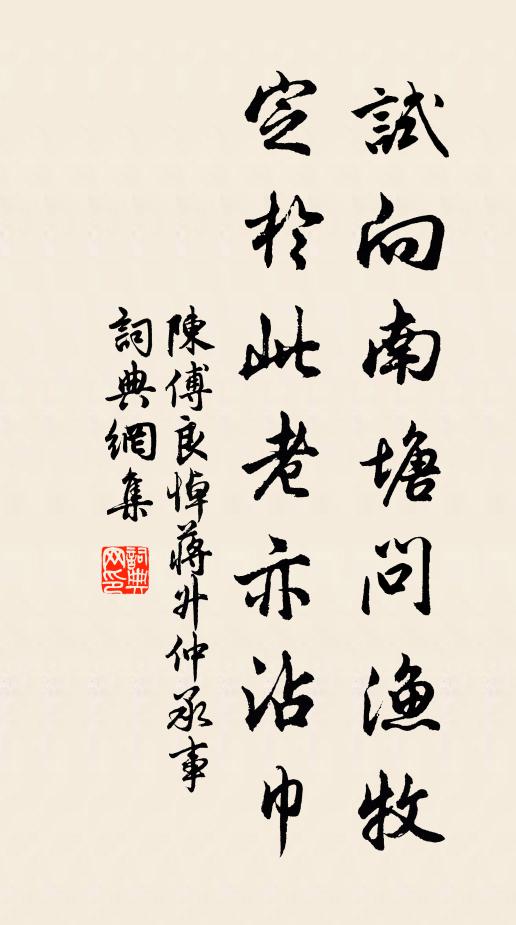 試向南塘問漁牧
定於此老亦沾巾
陳傅良悼蔣升仲承事
詞典網集
詞典网印